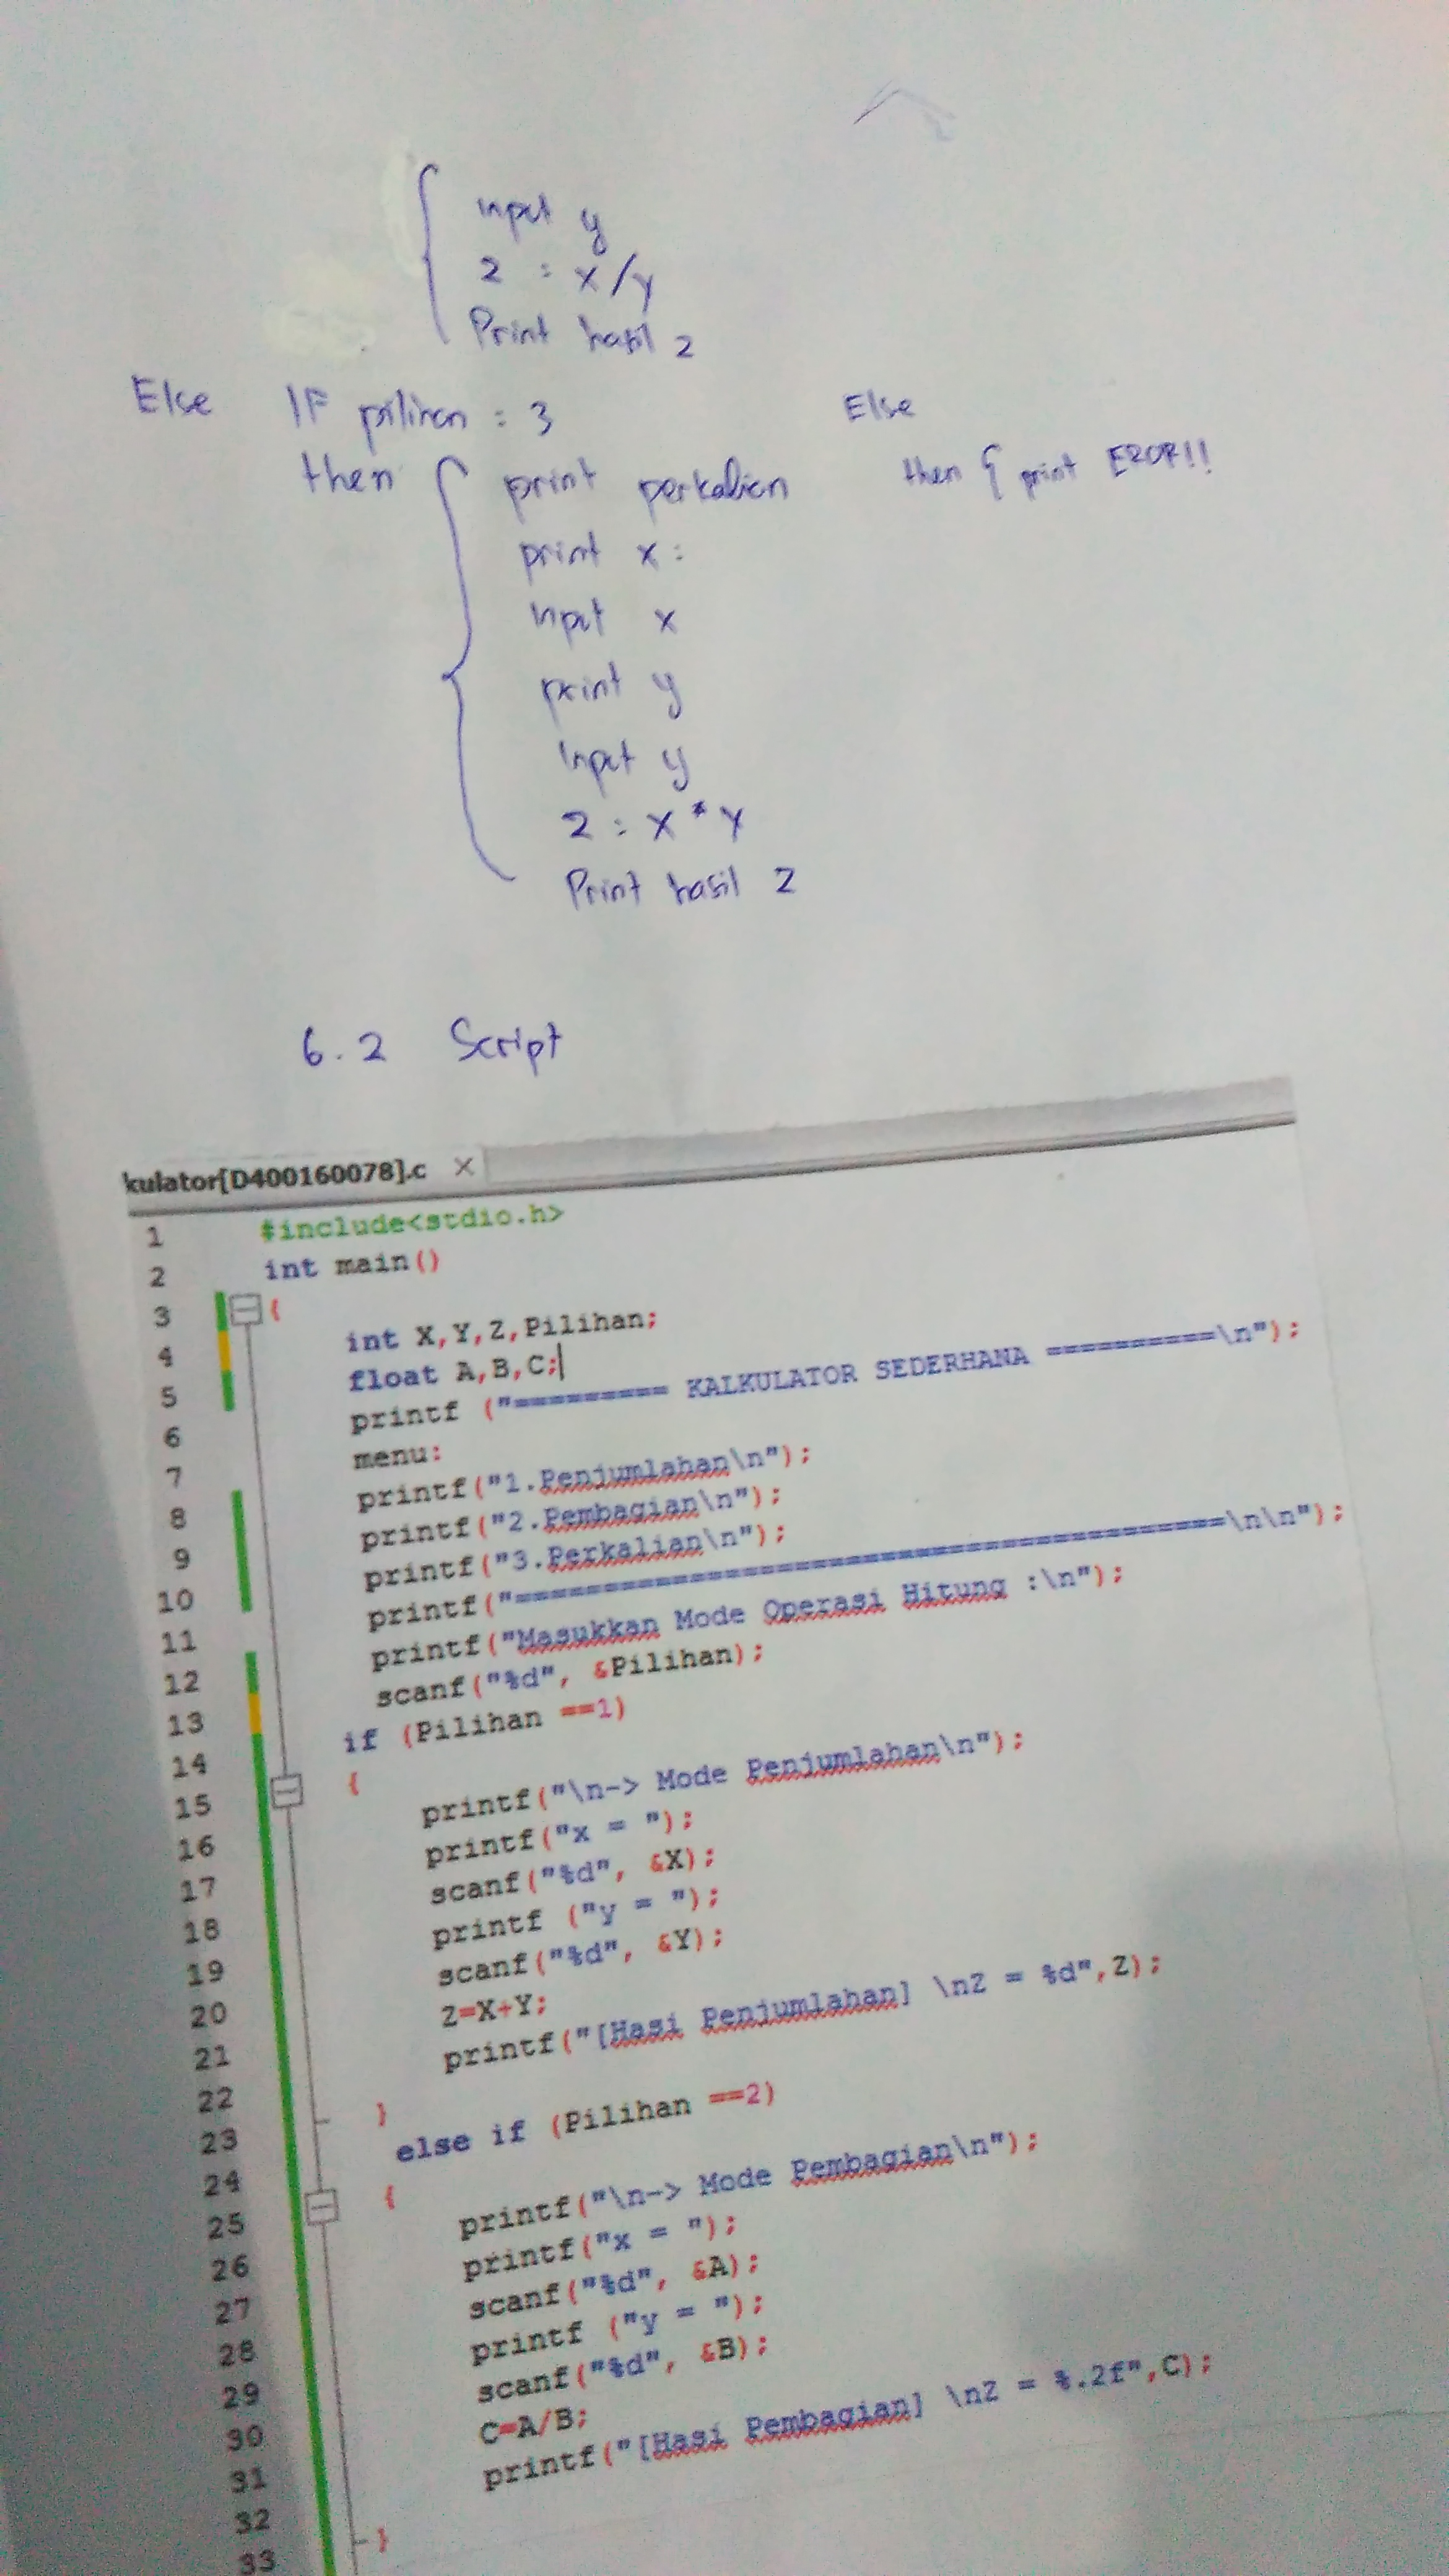 input y
z : x/y
Print hasil z
Else IF pilihan : 3
then { print perkalian
print x :
input x
print y
input y
z : x * y
Print hasil z
Else
then { print EROR!!
6.2 Script
kulator[D400160078].c ×
1 #include<stdio.h>
2 int main()
3 {
4 int X,Y,Z,Pilihan;
5 float A,B,C;
6 printf ("========= KALKULATOR SEDERHANA ==========\n");
7 menu:
8 printf("1.Penjumlahan\n");
9 printf("2.Pembagian\n");
10 printf("3.Perkalian\n");
11 printf("==========================================\n\n");
12 printf("Masukkan Mode Operasi Hitung :\n");
13 scanf("%d", &Pilihan);
14 if (Pilihan ==1)
15 {
16 printf("\n-> Mode Penjumlahan\n");
17 printf("x = ");
18 scanf("%d", &X);
19 printf ("y = ");
20 scanf("%d", &Y);
21 Z=X+Y;
22 printf("[Hasi Penjumlahan] \nZ = %d",Z);
23 }
24 else if (Pilihan ==2)
25 {
26 printf("\n-> Mode Pembagian\n");
27 printf("x = ");
28 scanf("%d", &A);
29 printf ("y = ");
30 scanf("%d", &B);
31 C=A/B;
32 printf("[Hasi Pembagian] \nZ = %.2f",C);
33 }